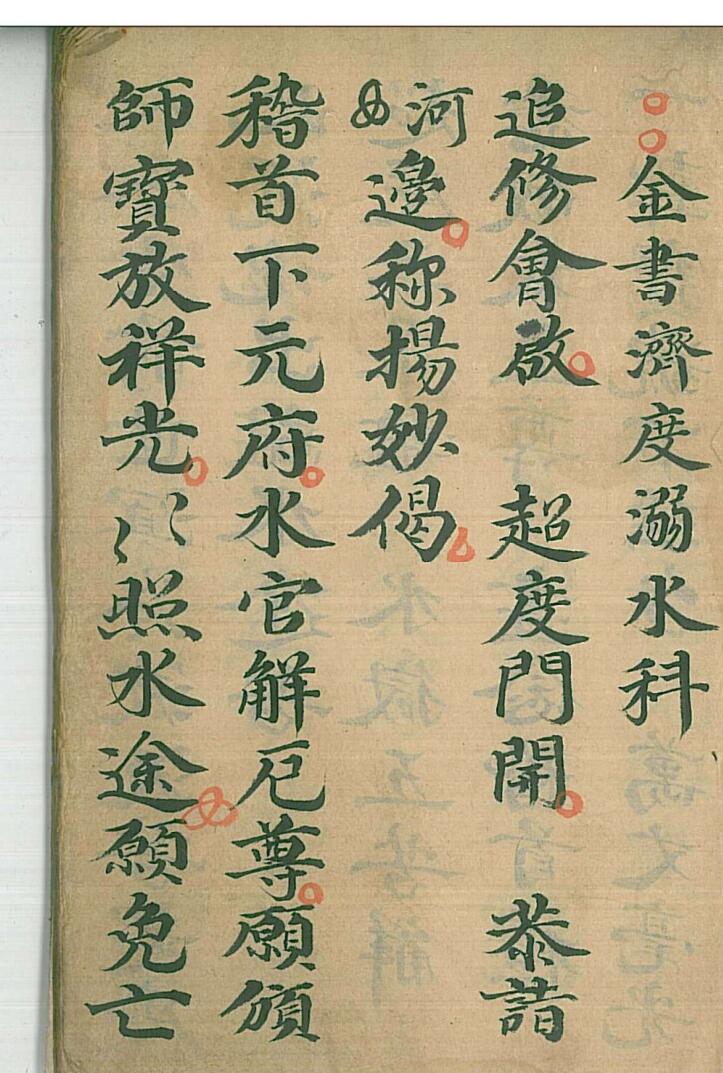 金書濟度溺水科
追修會啟 超度門開 恭詣
河邊称揚妙偈
稽首下元府水官解厄尊願頒
師寶放祥光〻照水途願免亡